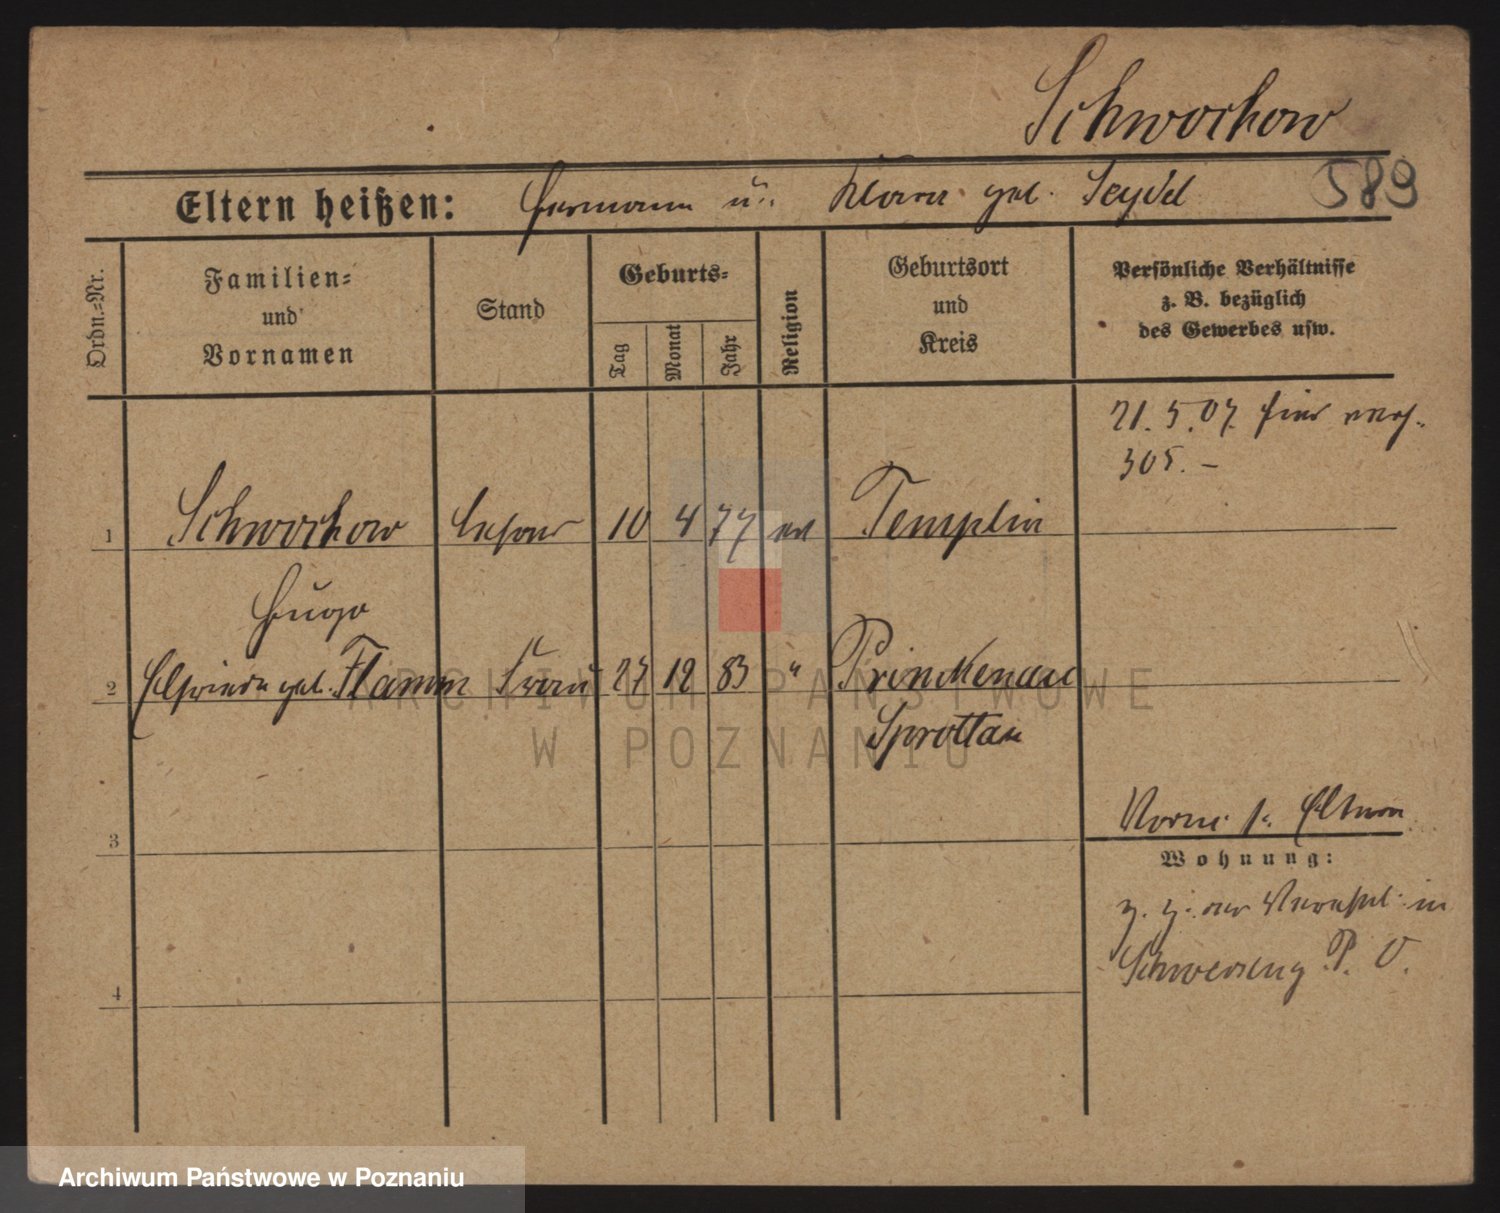 Schwochow
589
Eltern heißen: Hermann u. Klara geb. Seydel
Ordn.=Nr.
Familien=
und
Vornamen
Stand
Geburts=
Tag
Monat
Jahr
Religion
Geburtsort
und
Kreis
Persönliche Verhältnisse
z. B. bezüglich
des Gewerbes usw.
21. 5. 07. hier
305. –
1 Schwochow 10 4 77 ev Templin
Hugo
2 Elfriede geb. Flamm Frau 27 12 83 " Prinkenau
Sprottau
3
Eltern
Wohnung:
z. Z. in
Schwersenz P. O.
4
ARCHIWUM PAŃSTWOWE
W POZNANIU
Archiwum Państwowe w Poznaniu